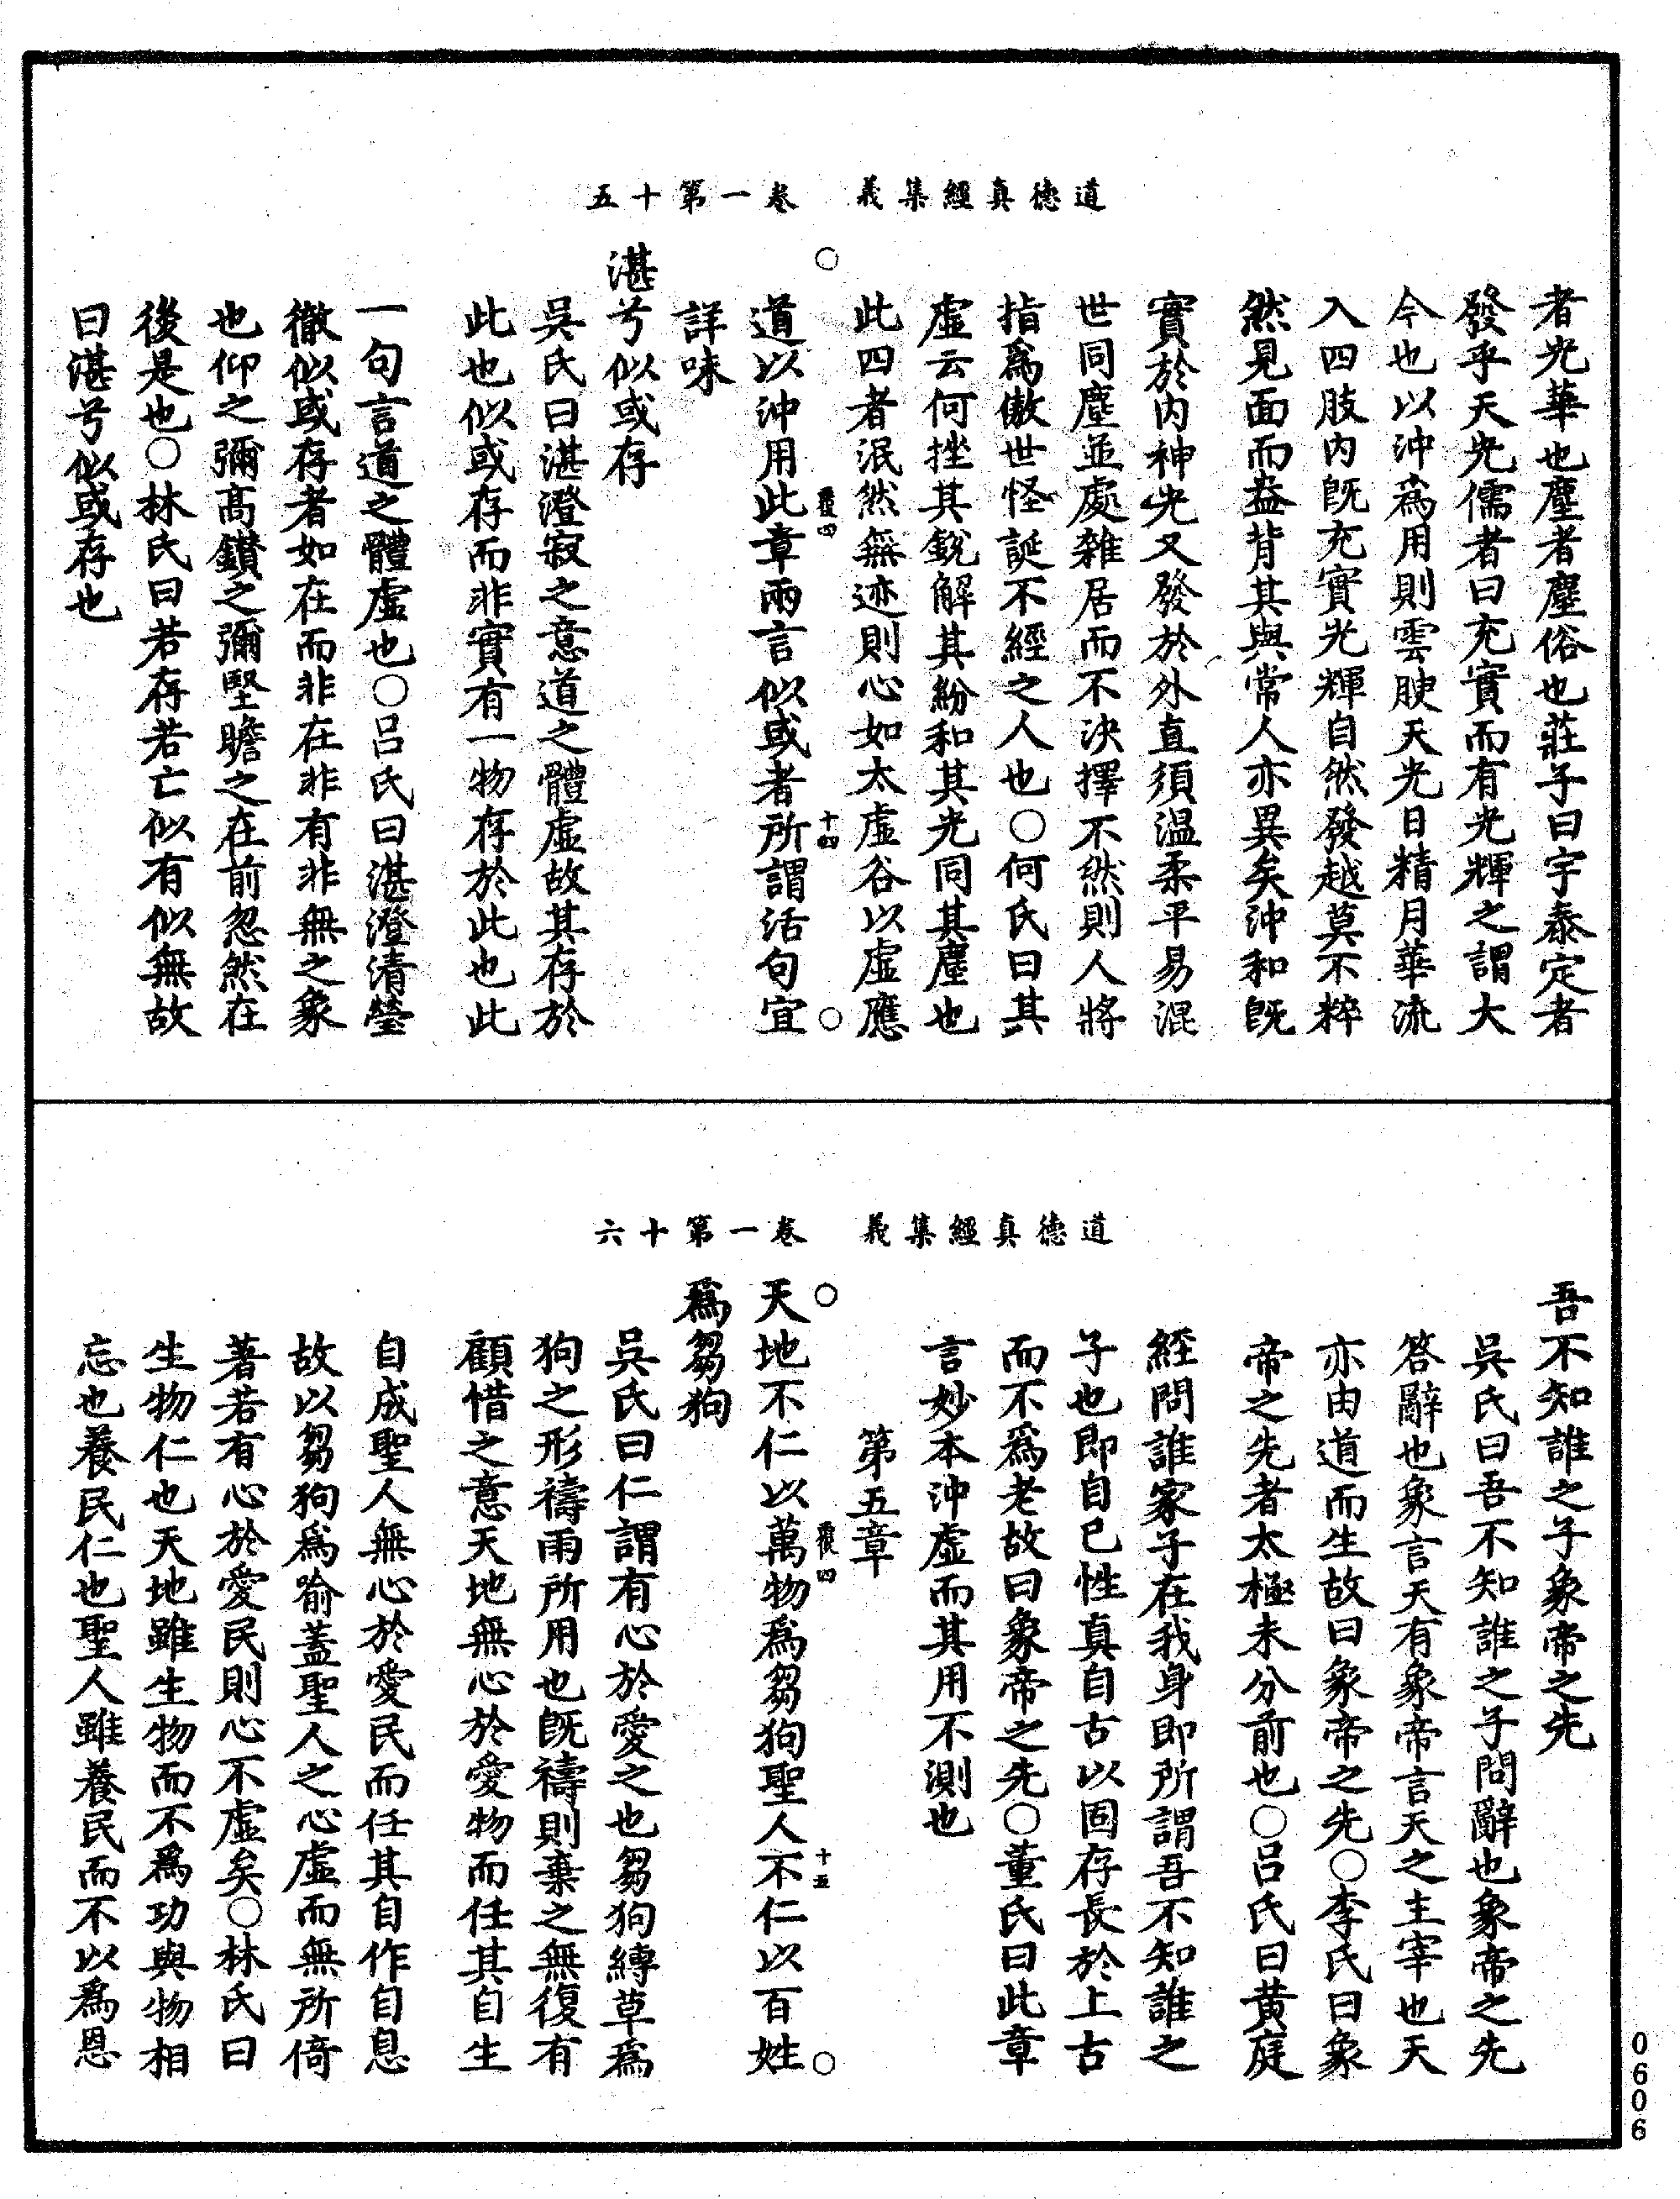 道德真經集義　卷一第十五
者光華也塵者塵俗也莊子曰宇泰定者
發乎天光儒者曰充實而有光輝之謂大
今也以沖爲用則雲腴天光日精月華流
入四肢内既充實光輝自然發越莫不粹
然見面而盎背其與常人亦異矣沖和既
實於内神光又發於外直須温柔平易混
世同塵並處雜居而不決擇不然則人將
指爲傲世怪誕不經之人也○何氏曰其
虛云何挫其銳解其紛和其光同其塵也
此四者泯然無迹則心如太虛谷以虛應
○　覆四　十四　○
道以沖用此章兩言似或者所謂活句宜
詳味
湛兮似或存
吳氏曰湛澄寂之意道之體虛故其存於
此也似或存而非實有一物存於此也此
一句言道之體虛也○呂氏曰湛澄清瑩
徹似或存者如在而非在非有非無之象
也仰之彌高鑚之彌堅瞻之在前忽然在
後是也○林氏曰若存若亡似有似無故
曰湛兮似或存也
道德真經集義　卷一第十六
吾不知誰之子象帝之先
吳氏曰吾不知誰之子問辭也象帝之先
答辭也象言天有象帝言天之主宰也天
亦由道而生故曰象帝之先○李氏曰象
帝之先者太極未分前也○呂氏曰黄庭
經問誰家子在我身即所謂吾不知誰之
子也即自已性真自古以固存長於上古
而不爲老故曰象帝之先○董氏曰此章
言妙本沖虛而其用不測也
第五章
○　覆四　十五　○
天地不仁以萬物爲芻狗聖人不仁以百姓
爲芻狗
吳氏曰仁謂有心於愛之也芻狗縳草爲
狗之形禱雨所用也既禱則棄之無復有
顧惜之意天地無心於愛物而任其自生
自成聖人無心於愛民而任其自作自息
故以芻狗爲喻蓋聖人之心虛而無所倚
著若有心於愛民則心不虛矣○林氏曰
生物仁也天地雖生物而不爲功與物相
忘也養民仁也聖人雖養民而不以爲恩
0606